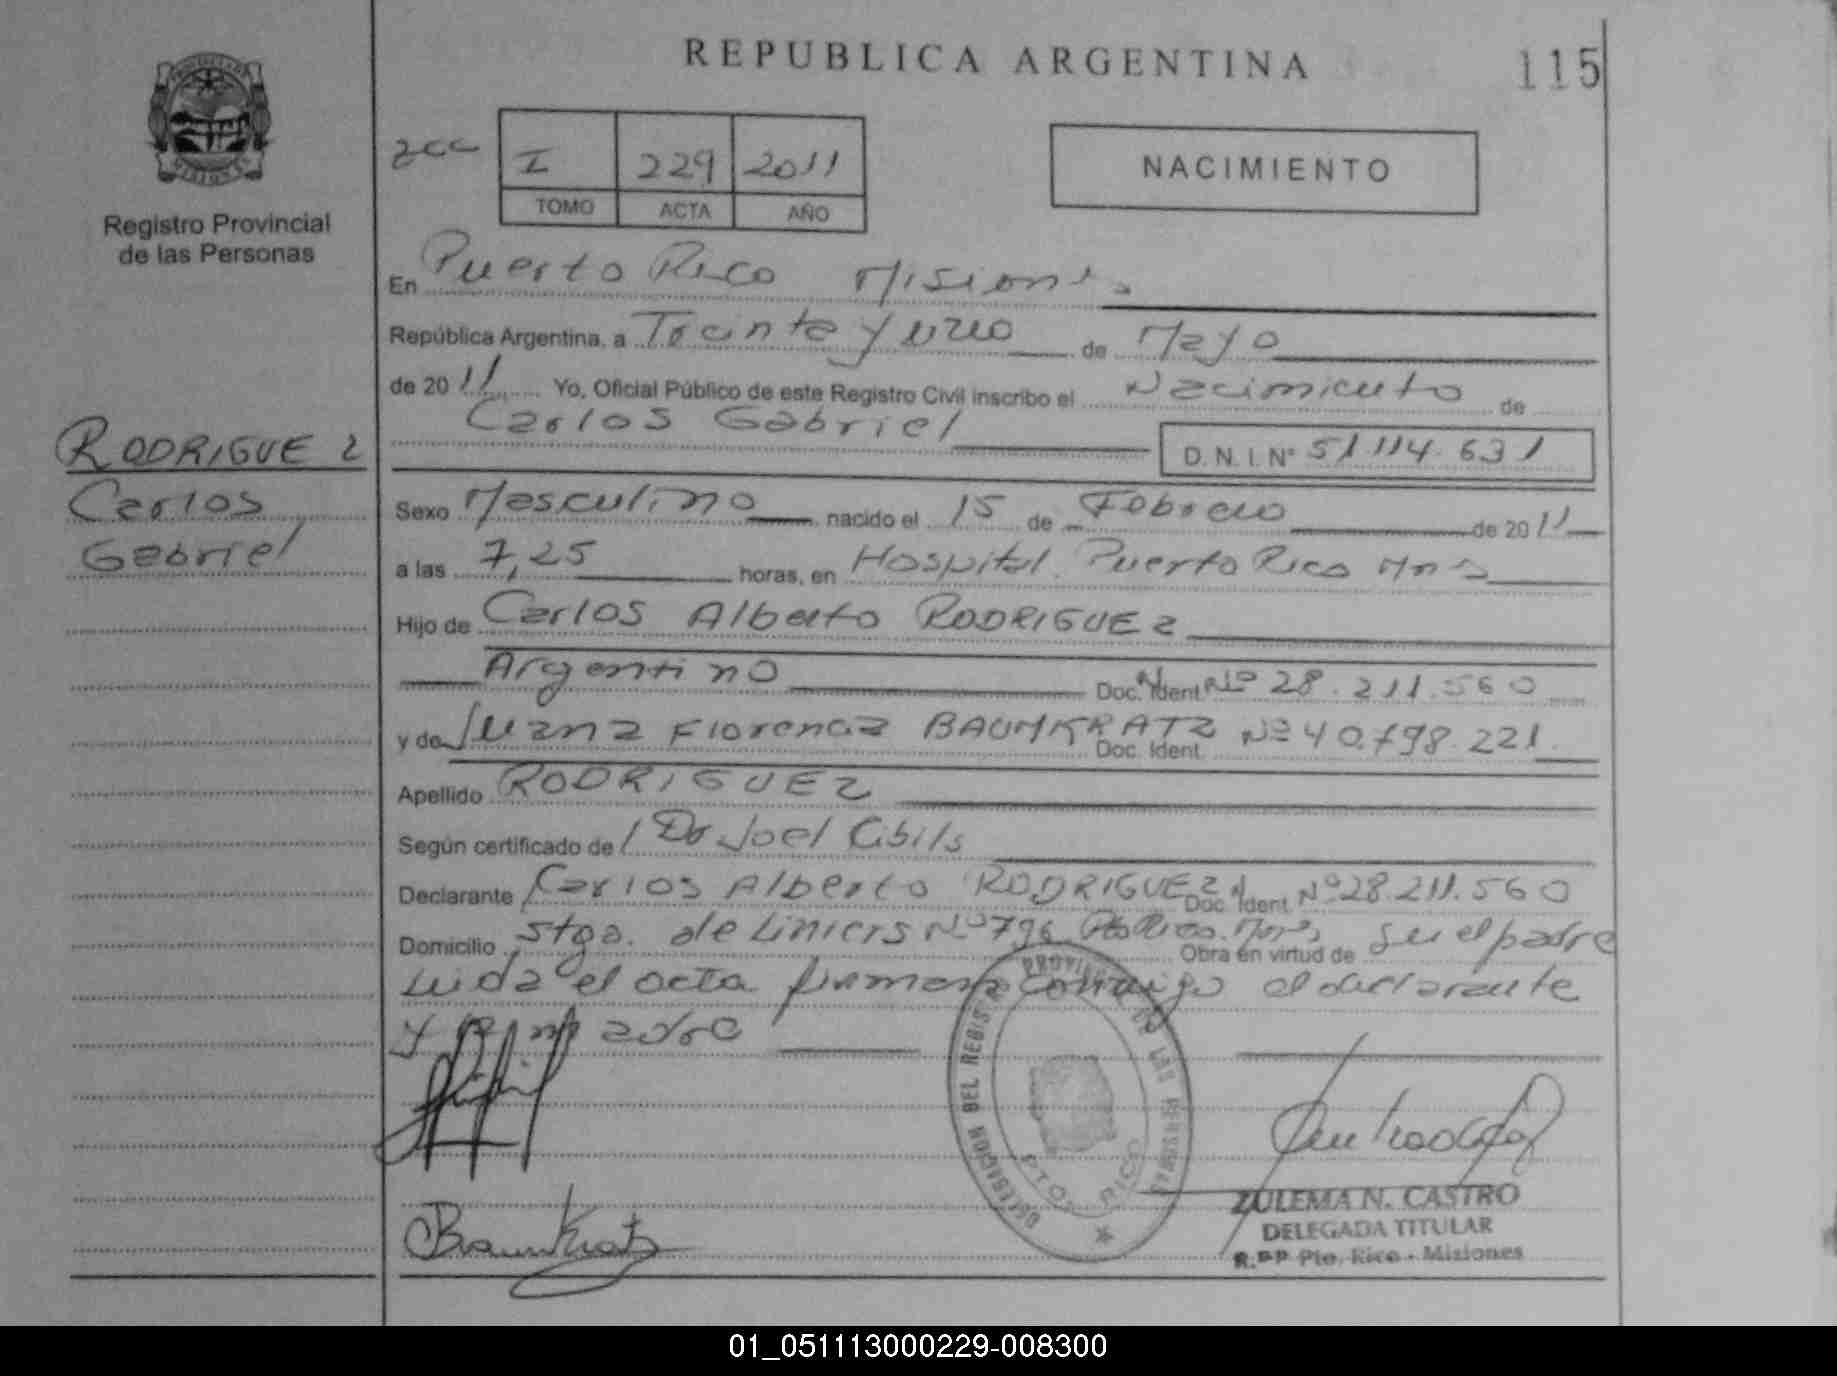 REPUBLICA ARGENTINA
115
PROVINCIA DE
MISIONES
Registro Provincial
de las Personas
I 229 2011
TOMO ACTA AÑO
NACIMIENTO
En Puerto Rico Misiones
República Argentina, a Treinta y uno de Mayo
de 2011 Yo, Oficial Público de este Registro Civil inscribo el Nacimiento de
Carlos Gabriel
D.N.I. Nº 51.114.631
RODRIGUEZ
Carlos
Gabriel
Sexo Masculino nacido el 15 de Febrero de 2011
a las 7,25 horas, en Hospital Puerto Rico Mnes
Hijo de Carlos Alberto RODRIGUEZ
Argentino Doc. Ident. Nº 28.211.560
y de Juana Florencia BAUMKRATZ Doc. Ident. Nº 40.798.221
Apellido RODRIGUEZ
Según certificado de Dr Joel Cibils
Declarante Carlos Alberto RODRIGUEZ Doc. Ident. Nº 28.211.560
Domicilio Stgo. de Liniers Nº 796 Pto Rico Mnes Obra en virtud de Ser el padre
Leida el acta firman conmigo el declarante
y la madre
DELEGACION DEL REGISTRO PROVINCIAL DE LAS PERSONAS
PTO. RICO
Baumkratz
ZULEMA N. CASTRO
DELEGADA TITULAR
R.PP Pto. Rico - Misiones
01_051113000229-008300